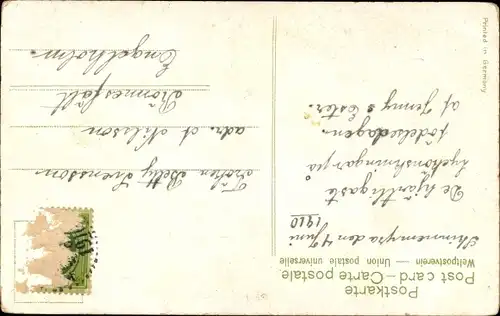 Postkarte
Post card – Carte postale
Weltpostverein — Union postale universelle
den 4 Juni
1910
De hjärtligaste
lyckönskningar på
födelsedagen.
af Jenny o Ester.
Fröken Betty Svensson
adr. A Nilsson
Rönnesfält
Engelholm.
Printed in Germany